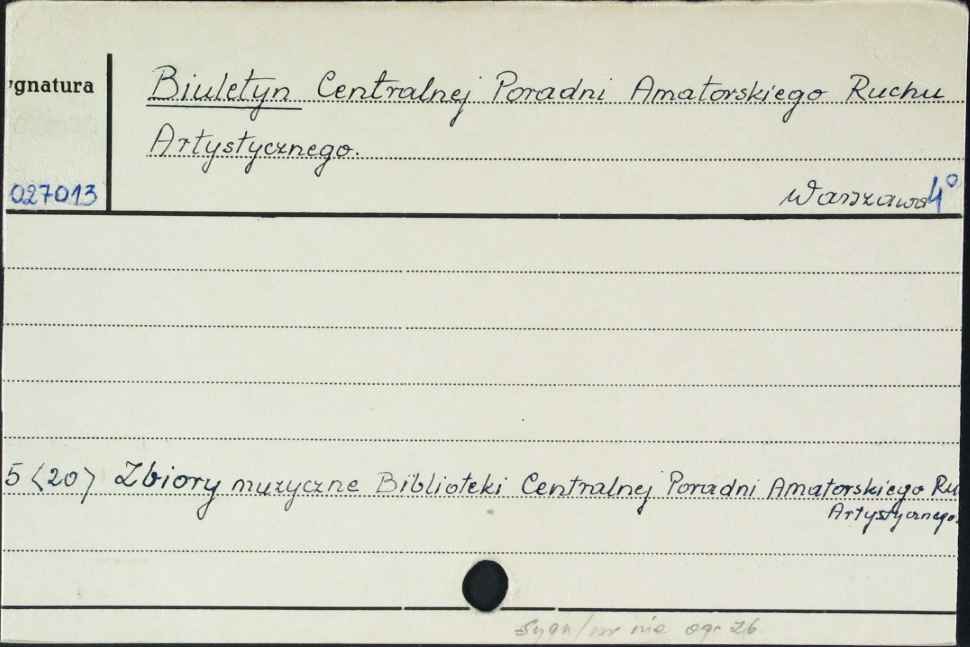 ygnatura
Biuletyn Centralnej Poradni Amatorskiego Ruchu
Artystycznego.
027013
Warszawa 4°
5 <20> Zbiory muzyczne Biblioteki Centralnej Poradni Amatorskiego Ru
Artystycznego.
nie